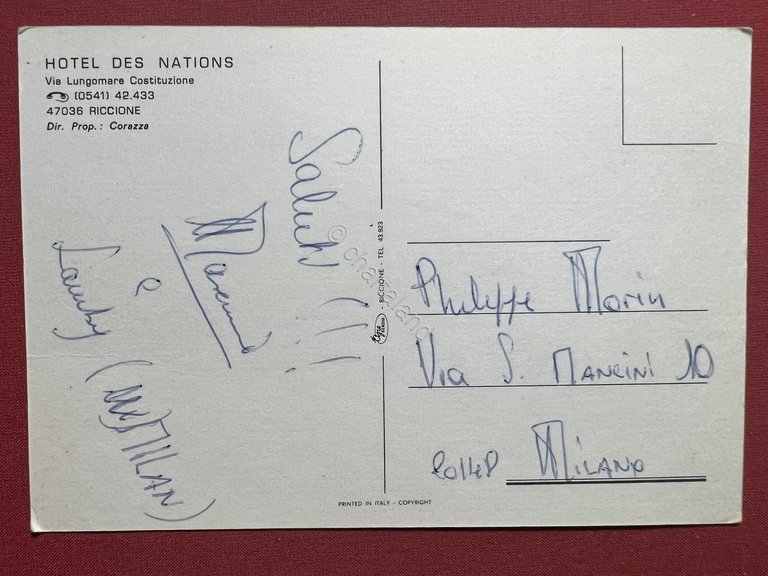 HOTEL DES NATIONS
Via Lungomare Costituzione
(0541) 42.433
47036 RICCIONE
Dir. Prop.: Corazza
Saluti !!!
e
(MILAN)
RICCIONE - TEL. 43.923
Philippe Morin
Via S. Mancini 10
Milano
PRINTED IN ITALY - COPYRIGHT